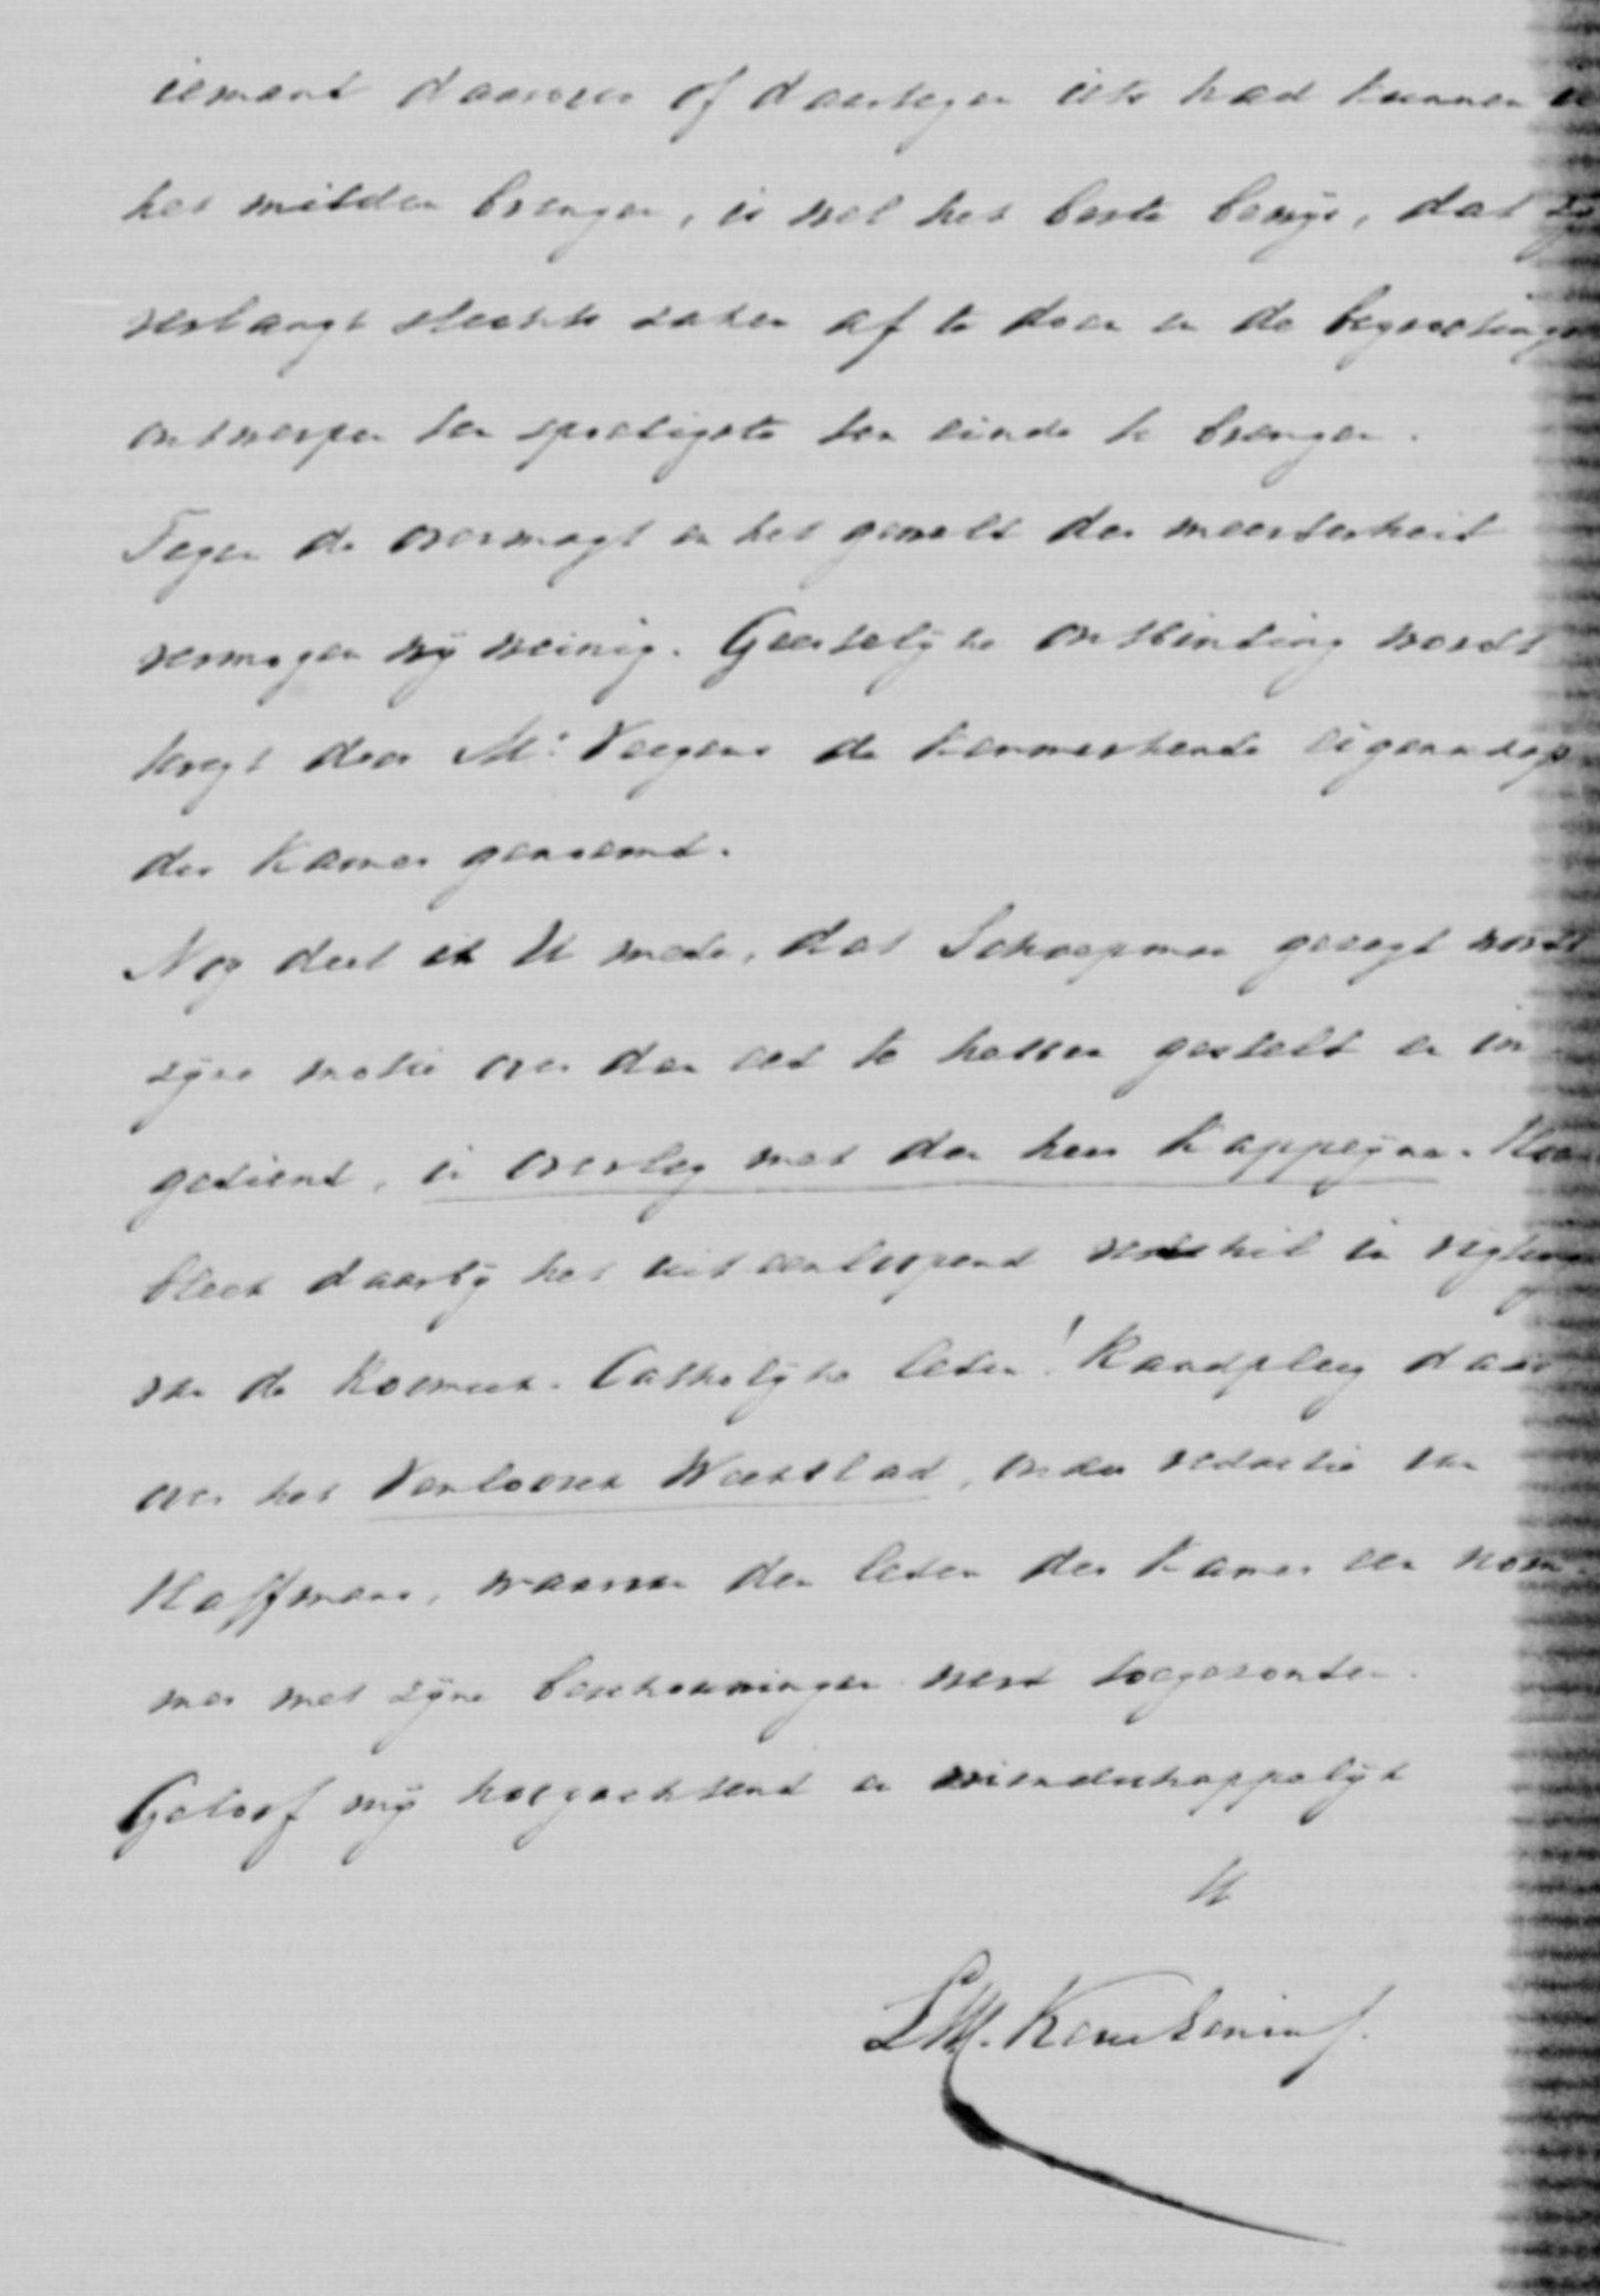 iemand daarvoor of daartegen iets had kunnen in
het midden brengen, is wel het beste bewijs, dat zij
verlangt slechte zaken af te doen en de begrootings
ontwerpen ten spoedigste ten einde te brengen.
Tegen de overmagt en het geweld der meerderheid
vermogen wij weinig. Geestelijke ontbinding wordt
door Mr. Veegens de kenmerkende eigenschap
der Kamer genoemd.
Nog deel ik U mede, dat Schaepman gezegd wordt
zijne motie over den eed te hebben gesteld en in
gediend, in overleg met den heer Kappeyne. Hoe
bleek daarbij het uiteenloopend verschil in rigting
van de Roomsch-Catholijke leden! Raadpleeg daar
over het Venloosch Weekblad, onder redactie van
Haffmans, waarvan den leden der Kamer een nom
mer met zijne beschouwingen werd toegezonden.
Geloof mij hoogachtend en vriendschappelijk
U
L.W.